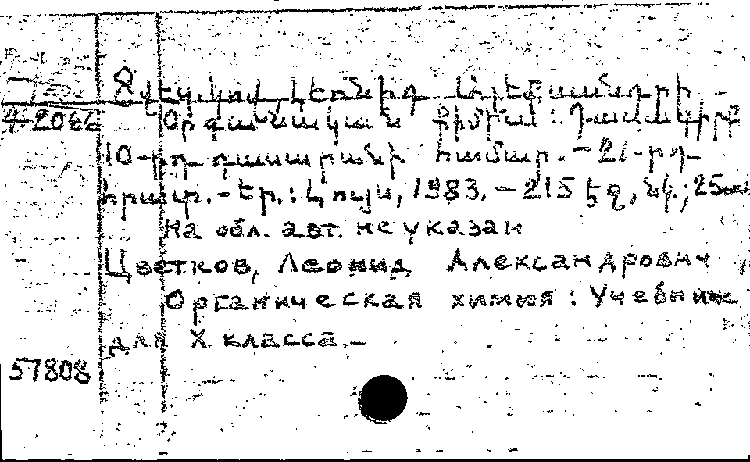 Ցվետկով, Լեոնիդ Ալեքսանդրի
4-2086 Օրգանական քիմիա : Դասագիրք
10-րդ դասարանի համար. - 21-րդ
հրատ. - Եր. : Լույս, 1983. - 215 էջ, նկ.; 25սմ
На обл. авт. не указан
Цветков, Леонид Александрович
Органическая химия : Учебник
для X класса. -
57808